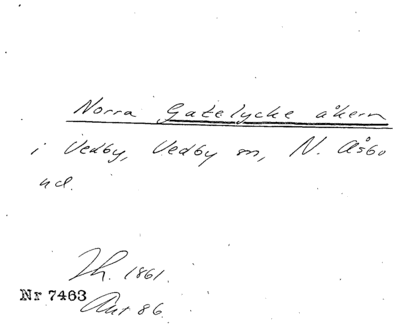 Norra Gatelycke åkern
i Vedby, Vedby sn, N. Åsbo
hd.
Th. 1861.
Nr 7463
Akt 86.